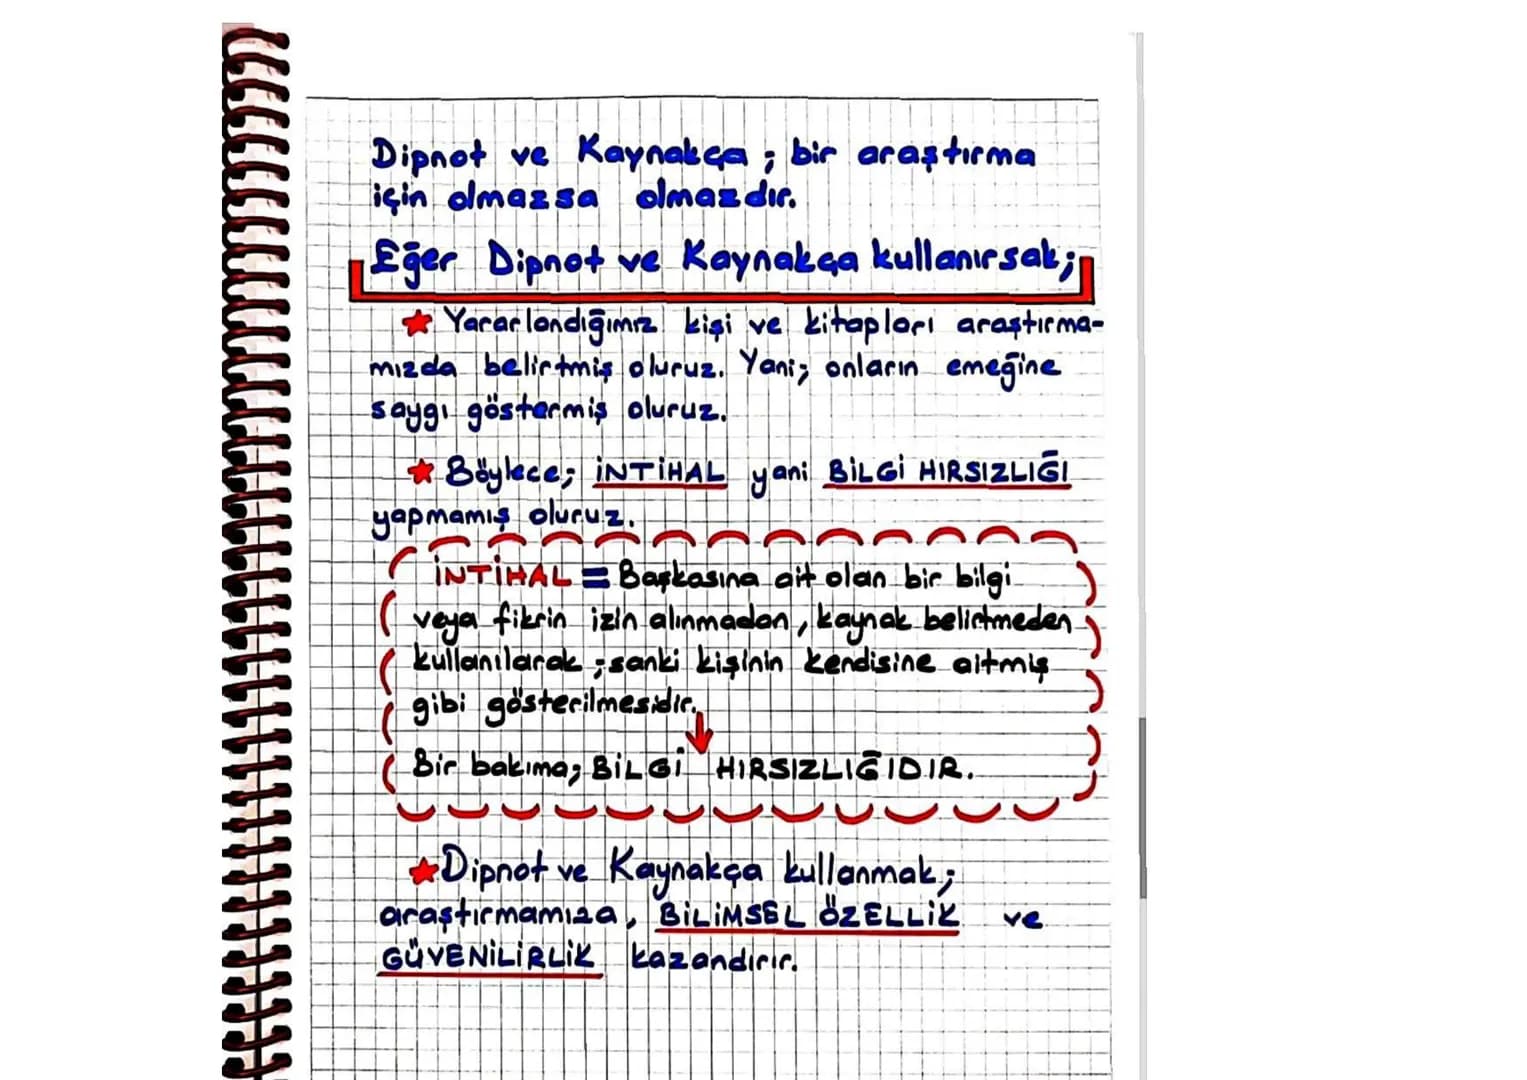 Dipnot ve Kaynakça ; bir araştırma
için olmazsa olmazdır.
Eğer Dipnot ve Kaynakça kullanırsak;
★ Yararlandığımız kişi ve kitapları araştırma-
mızda belirtmiş oluruz. Yani; onların emeğine
saygı göstermiş oluruz.
★ Böylece; İNTİHAL yani BİLGİ HIRSIZLIĞI
yapmamış oluruz.
İNTİHAL = Başkasına ait olan bir bilgi
veya fikrin izin alınmadan, kaynak belirtmeden
kullanılarak ; sanki kişinin kendisine aitmiş
gibi gösterilmesidir.
Bir bakıma; BİLGİ HIRSIZLIĞIDIR.
★ Dipnot ve Kaynakça kullanmak;
araştırmamıza, BİLİMSEL ÖZELLİK ve
GÜVENİLİRLİK kazandırır.